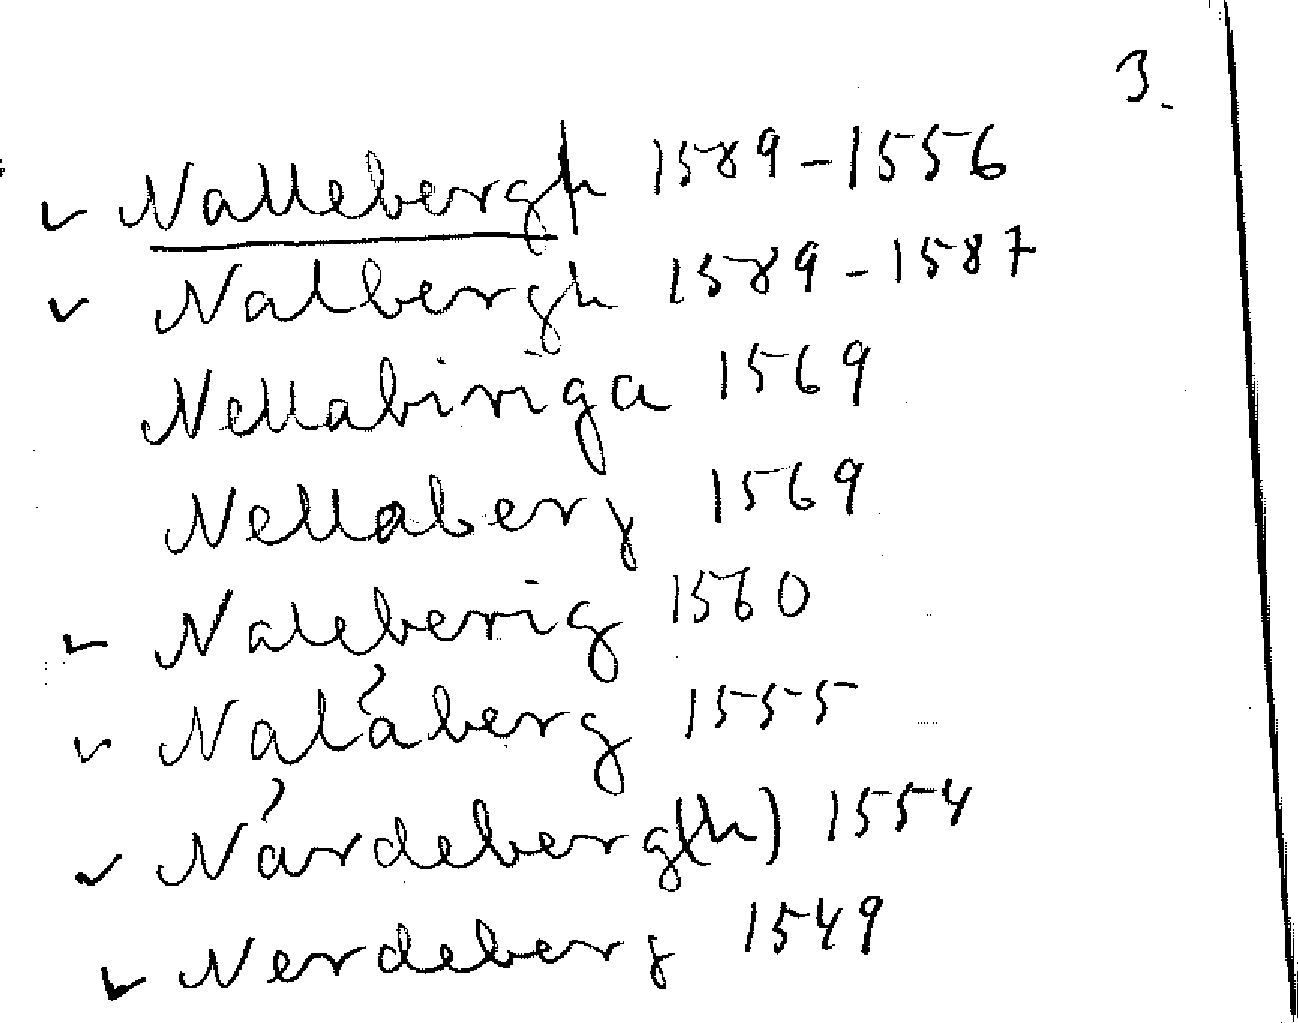 3.
✓ Nallebergh 1589-1556
✓ Nalbergh 1589-1587
Nellabiriga 1569
Nellaberg 1569
✓ Naleberig 1560
✓ Nalåberg 1555
✓ Nårdeberg(h) 1554
✓ Nerdeberg 1549